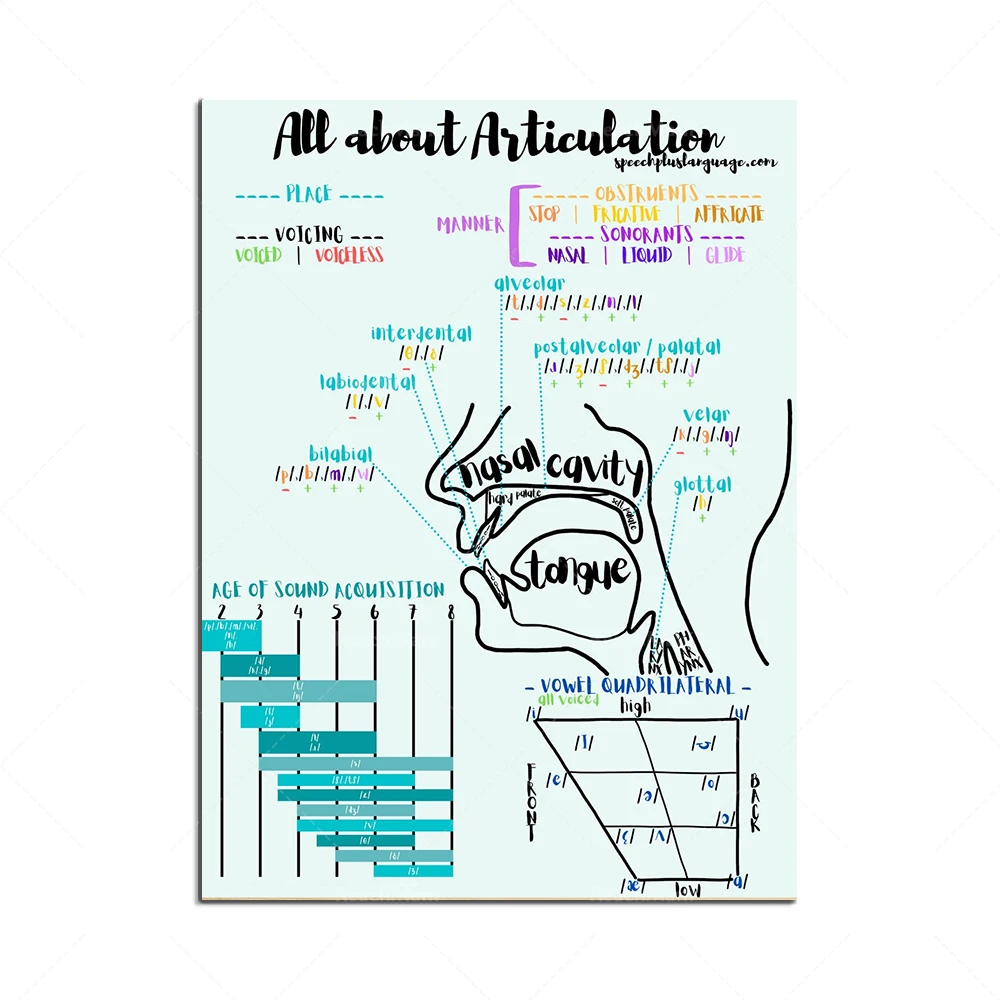 All about Articulation
speechpluslanguage.com
---- PLACE ----
--- VOICING ---
VOICED | VOICELESS
MANNER
---- OBSTRUENTS ----
STOP | FRICATIVE | AFFRICATE
---- SONORANTS ----
NASAL | LIQUID | GLIDE
alveolar
/t/,/d/,/s/,/z/,/n/,/l/
- + - + + +
interdental
/θ/,/ð/
- +
postalveolar / palatal
/ɹ/,/ʒ/,/ʃ/,/dʒ/,/tʃ/,/j/
+ + - + + +
labiodental
/f/,/v/
- +
velar
/k/,/g/,/ŋ/
- + +
bilabial
/p/,/b/,/m/,/w/
- + + +
glottal
/h/
+
nasal cavity
hard palate
soft palate
tongue
LARYNX
PHARYNX
AGE OF SOUND ACQUISITION
2 3 4 5 6 7 8
/p/,/b/,/m/,/w/,
/n/,
/h/
/d/
/k/,/g/
/t/
/ŋ/
/f/
/j/
/l/
/ɹ/
/s/
/ʃ/,/tʃ/
/z/
/dʒ/
/v/
/θ/
/ð/
/ʒ/
- VOWEL QUADRILATERAL -
all voiced
high
/i/ /u/
/ɪ/ /ʊ/
/e/ /o/
/ə/
/ɔ/
/ɛ/ /ʌ/
/æ/ /a/
low
FRONT
BACK